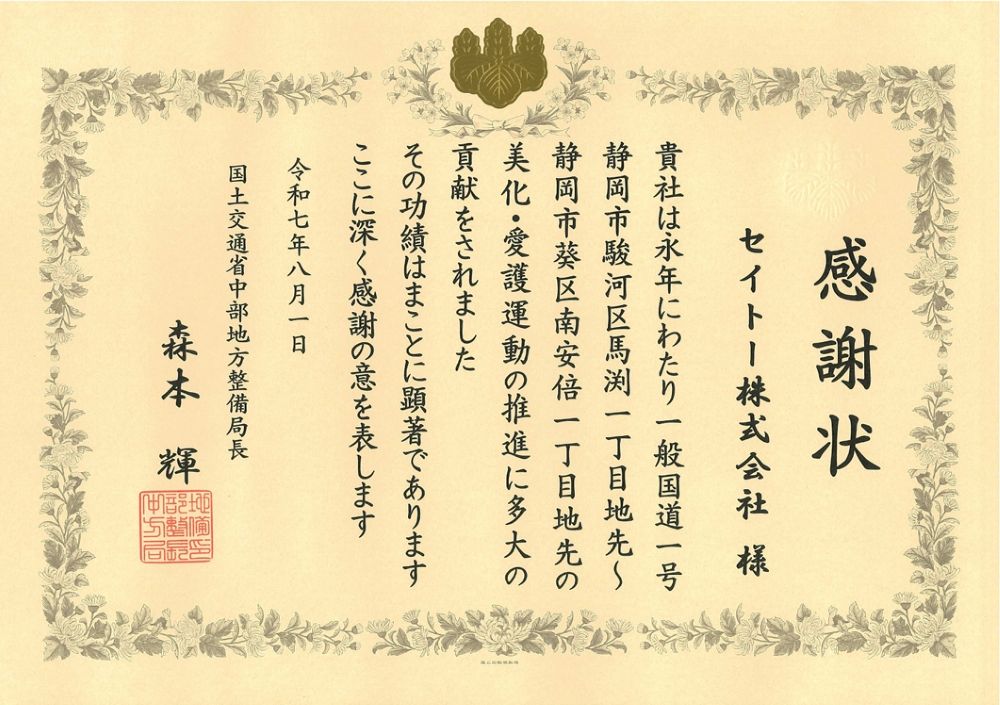 感謝状
セイトー株式会社 様
貴社は永年にわたり一般国道一号
静岡市駿河区馬渕一丁目地先～
静岡市葵区南安倍一丁目地先の
美化・愛護運動の推進に多大の
貢献をされました
その功績はまことに顕著であります
ここに深く感謝の意を表します
令和七年八月一日
国土交通省中部地方整備局長
森本 輝